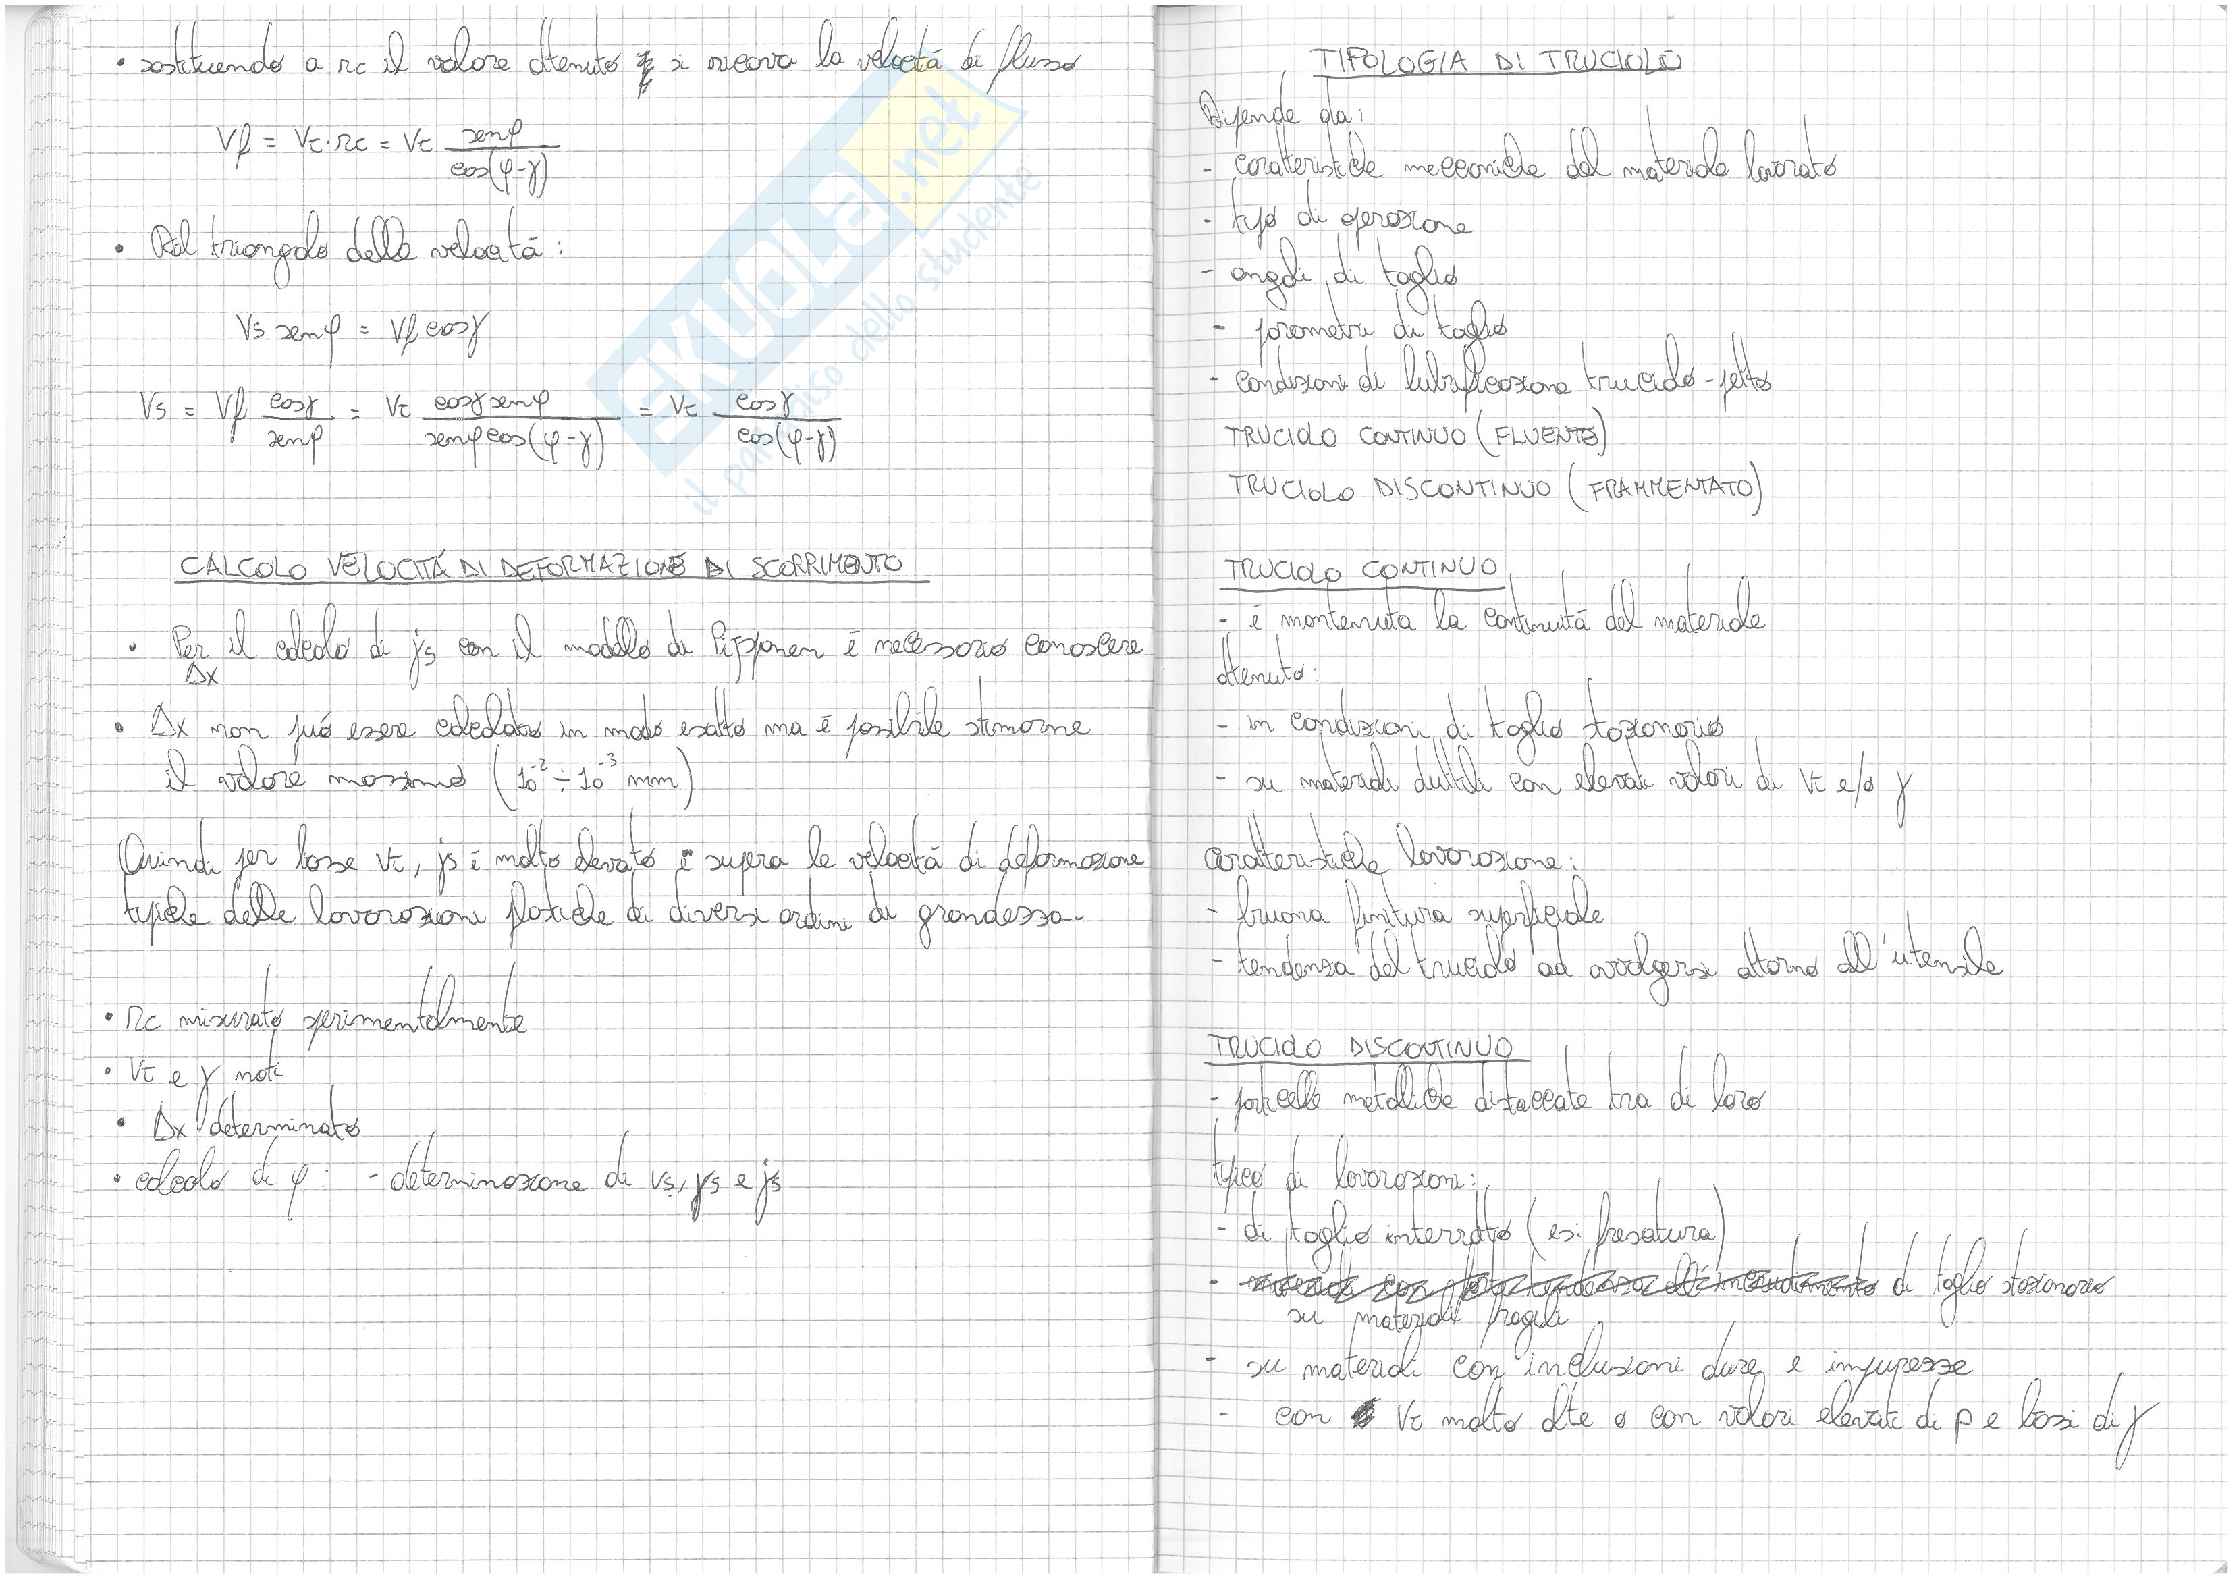 • sostituendo a rc il valore ottenuto si ricava la velocità di flusso
Vf = Vt·rc = Vt senφ / cos(φ-γ)
• Dal triangolo delle velocità:
Vs senφ = Vf cosγ
Vs = Vf cosγ / senφ = Vt cosγ senφ / senφ cos(φ-γ) = Vt cosγ / cos(φ-γ)
CALCOLO VELOCITÀ DI DEFORMAZIONE DI SCORRIMENTO
• Per il calcolo di γ̇s con il modello di Piispanen è necessario conoscere
Δx
• Δx non può essere calcolato in modo esatto ma è possibile stimarne
il valore massimo (10⁻² ÷ 10⁻³ mm)
Quindi per basse Vt, γ̇s è molto elevato e supera le velocità di deformazione
tipiche delle lavorazioni plastiche di diversi ordini di grandezza.
• rc misurato sperimentalmente
• Vt e γ noti
• Δx determinato
• calcolo di φ: - determinazione di vs, γs e γ̇s
TIPOLOGIA DI TRUCIOLO
Dipende da:
- caratteristiche meccaniche del materiale lavorato
- tipo di operazione
- angoli di taglio
- parametri di taglio
- condizioni di lubrificazione truciolo-petto
TRUCIOLO CONTINUO (FLUENTE)
TRUCIOLO DISCONTINUO (FRAMMENTATO)
TRUCIOLO CONTINUO
- è mantenuta la continuità del materiale
ottenuto:
- in condizioni di taglio stazionario
- su materiali duttili con elevati valori di Vt e/o γ
caratteristiche lavorazione:
- buona finitura superficiale
- tendenza del truciolo ad avvolgersi attorno all'utensile
TRUCIOLO DISCONTINUO
- particelle metalliche distaccate tra di loro
tipico di lavorazioni:
- di taglio interrotto (es: fresatura)
- di taglio stazionario
su materiali fragili
- su materiali con inclusioni dure e impurezze
- con Vt molto alte o con valori elevati di p e bassi di γ
SKUOLA.net
il paradiso dello studente